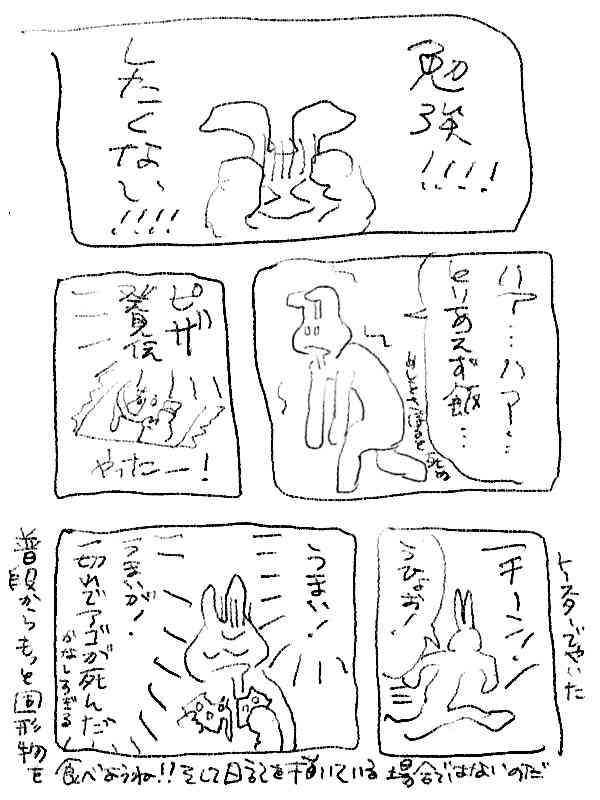 勉強!!!!
したくない!!!!
ハァ…ハァ…
とりあえず飯…
ピザ
発見
やったー!
トースターでやいた
チーン!
うひょお!
うまい!
うまいが!
一切れでアゴが死んだ
かなしすぎる
普段からもっと固形物を
食べようね!!そして日記を描いている場合ではないのだ